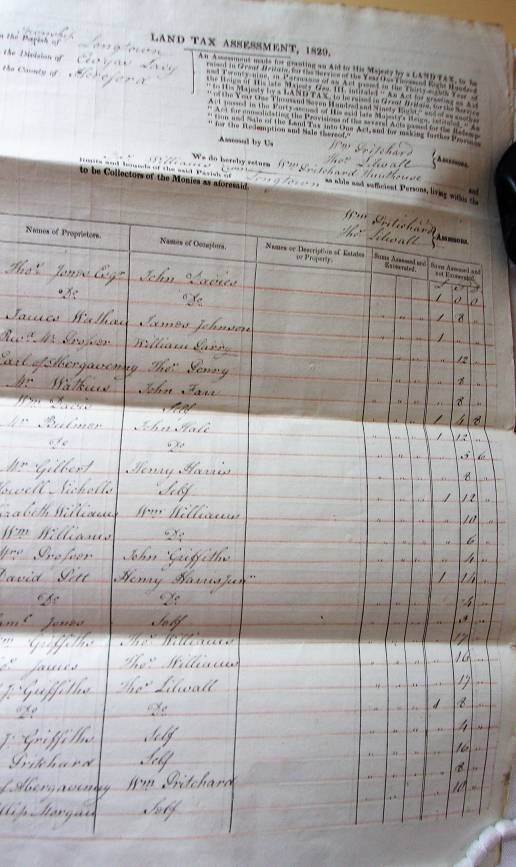 LAND TAX ASSESSMENT, 1829.
Township
n the Parish of Longtown
the Division of Ewyas Lacy
the County of Hereford
An Assessment made for granting an Aid to His Majesty by a LAND TAX, to be
raised in Great Britain, for the Service of the Year One Thousand Eight Hundred
and Twenty-nine, in Pursuance of an Act passed in the Thirty-eighth
Year of His late Majesty Geo. III. intituled "An Act for granting an Aid
"to His Majesty by a LAND TAX, to be raised in Great Britain, for the Service
"of the Year One Thousand Seven Hundred and Ninety Eight," and of another
Act passed in the Forty-second of His said late Majesty's Reign, intituled, "An
"Act for consolidating the Provisions of the several Acts passed for the Redemp-
"tion and Sale of the Land Tax into One Act, and for making further Provision
"for the Redemption and Sale thereof."
Assessed by Us
Wm Pritchard
Thos Lilwall } Assessors.
We do hereby return Wm Pritchard Hunthouse and
Williams
limits and bounds of the said Parish of Longtown as able and sufficient Persons, living within the
to be Collectors of the Monies as aforesaid.
Wm Pritchard
Thos Lilwall } Assessors.
Names of Proprietors. Names of Occupiers. Names or Description of Estates or Property. Sums Assessed and Exonerated. Sums Assessed and not Exonerated.
Thos Jones Esqr John Davies 1 0 0
Do Do 1 8 "
James Wathan James Johnson 1 " "
Revd Mr Prosser William Parry 12 "
Earl of Abergavenny Thos Perry 8 "
Mr Watkins John Fau 8 "
Wm Davis Self 1 4 8
Mr Bulmer John Hall 1 12 "
Do Do 5 6
Mr Gilbert Henry Harris 8 "
Howell Nicholls Self 1 12 "
izabeth Williams Wm Williams 10 "
Wm Williams Do 6 "
Mrs Prosser John Griffiths 4 "
David Pitt Henry Harris junr 1 14 "
Do Do 4 "
aml Jones Self 3 "
m Griffiths Thos Williams 17 "
os James Thos Williams 16 "
Js Griffiths Thos Lilwall 17 "
Do Do 1 8 "
Js Griffiths Self 4 "
Pritchard Self 16 "
of Abergavenny Wm Pritchard 8 "
llip Morgan Self 10 "